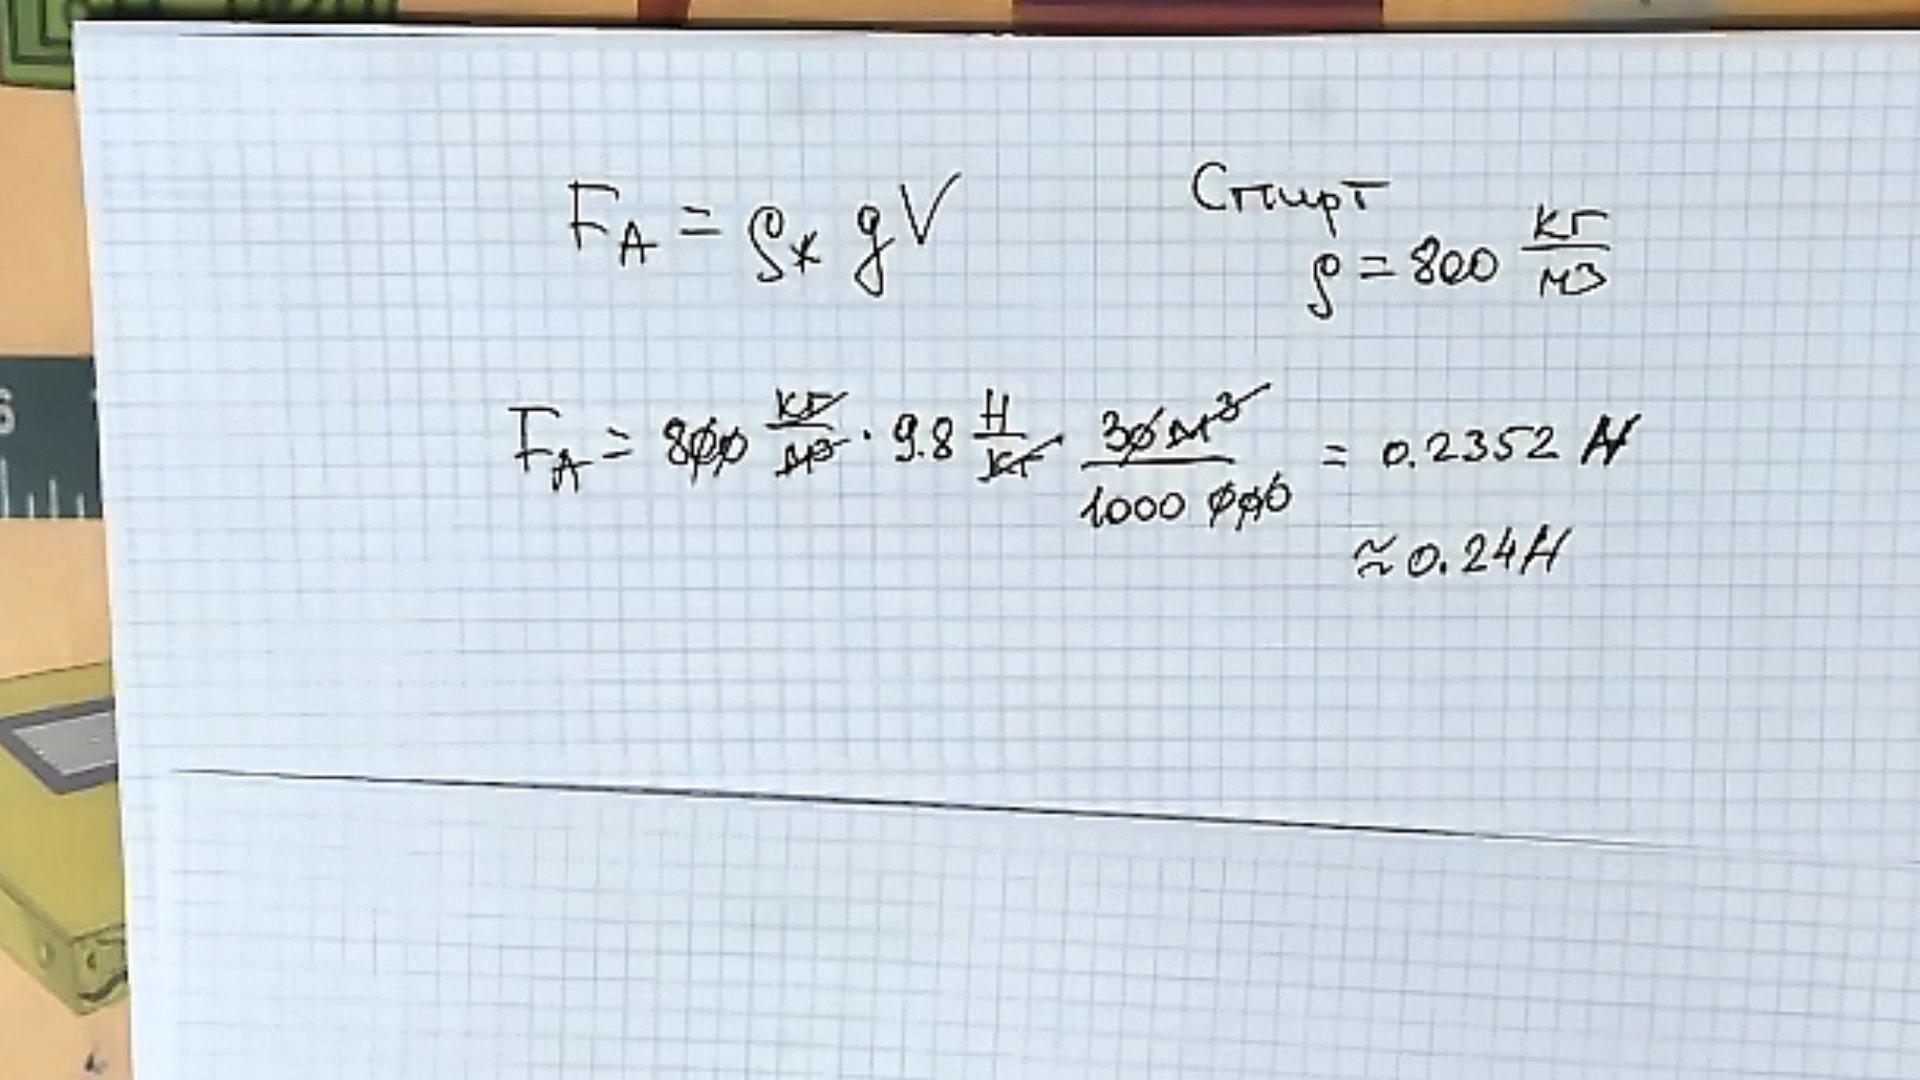 F_A = ρ_ж g V
Спирт
ρ = 800 кг/м3
F_A = 800 кг/м3 · 9.8 Н/кг · 30 м³/1000 000 = 0.2352 Н
≈ 0.24 Н